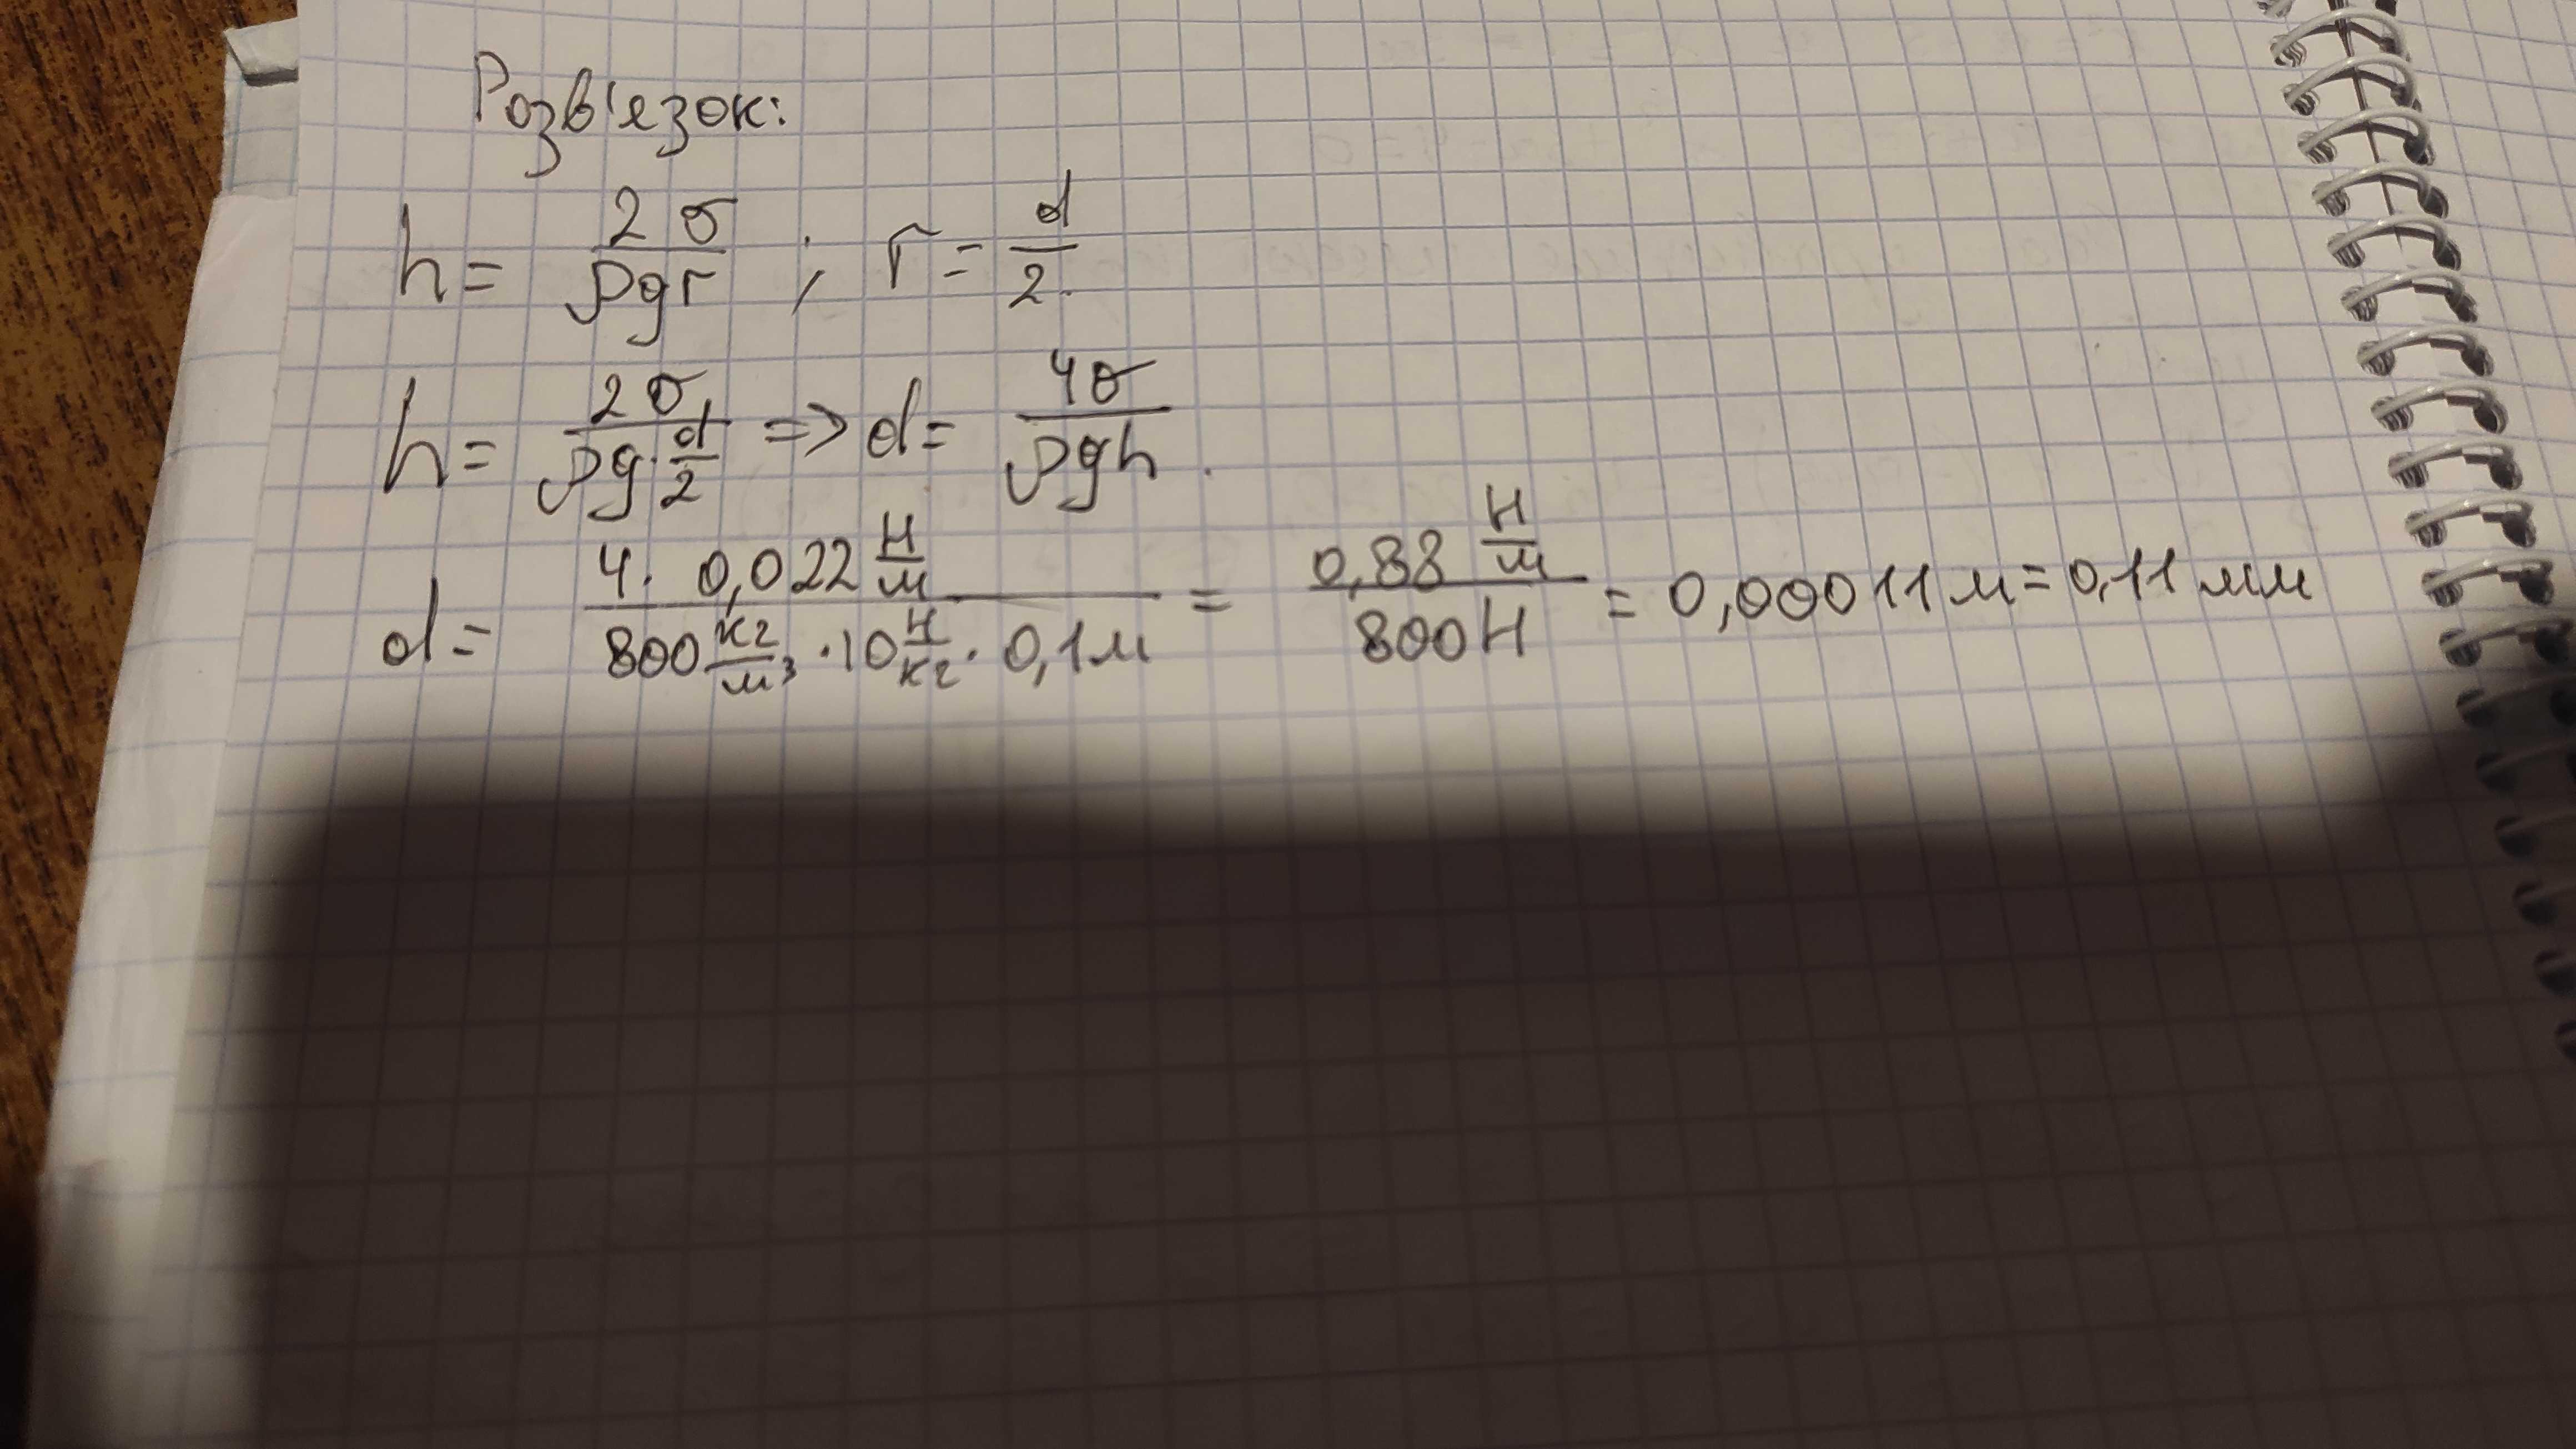 Розв'езок:
h = 2σ/ρgr ; r = d/2.
h = 2σ/ρg·d/2 => d = 4σ/ρgh.
d = 4·0,022 Н/м / 800 кг/м³ ·10 Н/кг · 0,1м = 0,88 Н/м / 800Н = 0,00011м = 0,11 мм